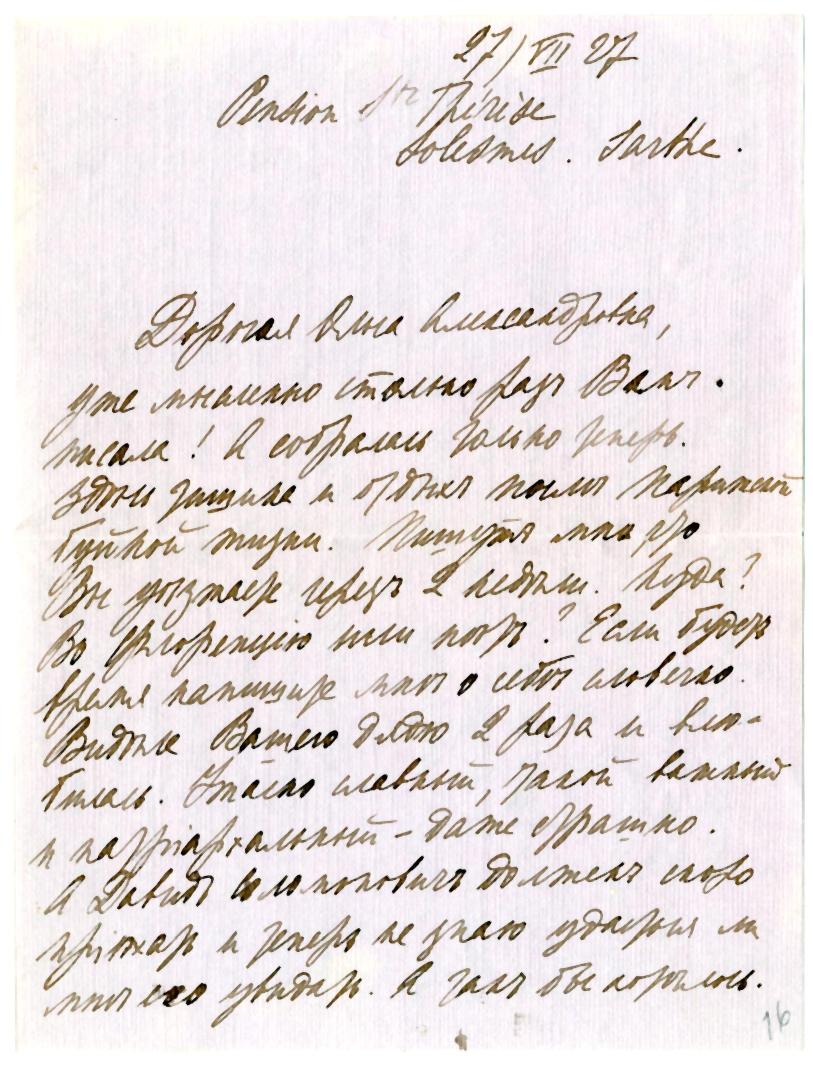 27/VII 27
Pension Ste Thérèse
Solesmes. Sarthe.
Дорогая Ольга Александровна,
уже мысленно столько разъ Вамъ
писала! А собралась только теперь.
Здѣсь тишина и отдыхъ послѣ парижской
буйной жизни. Пишутъ мнѣ что
Вы уѣзжаете черезъ 2 недѣли. Куда?
Во Флоренцію или нѣтъ? Если будетъ
время напишите мнѣ о себѣ словечко.
Видѣла Вашего дядю 2 раза и влю-
билась. Ужасно славный, такой важный
и патріархальный – даже страшно.
А Давидъ Соломоновичъ долженъ скоро
пріѣхать и теперь не знаю удастся ли
мнѣ его увидать. А такъ бы хотѣлось.
16